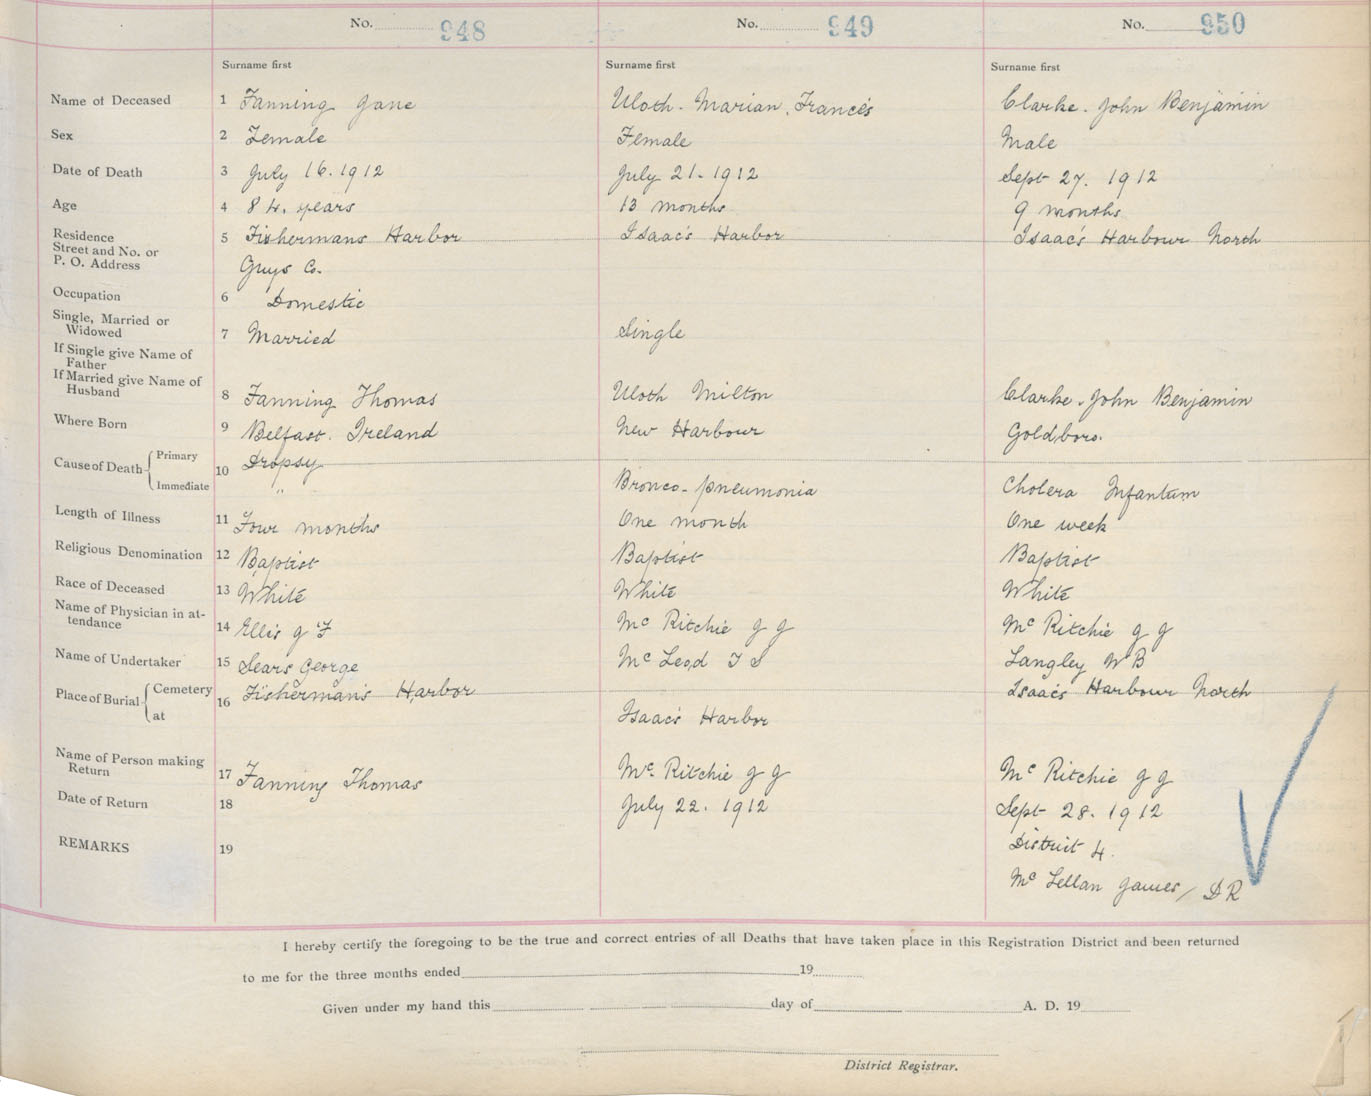 No. 948 No. 949 No. 950
Surname first Surname first Surname first
Name of Deceased 1 Fanning Jane Uloth. Marian. Francis Clarke. John Benjamin
Sex 2 Female Female Male
Date of Death 3 July 16. 1912 July 21- 1912 Sept 27. 1912
Age 4 84. years 13 months 9 months
Residence 5 Fishermans Harbor Isaac's Harbor Isaac's Harbour North
Street and No. or
P. O. Address Guys Co.
Occupation 6 Domestic
Single, Married or
Widowed 7 Married Single
If Single give Name of
Father
If Married give Name of
Husband 8 Fanning Thomas Uloth Milton Clarke. John Benjamin
Where Born 9 Belfast. Ireland New Harbour Goldboro.
Cause of Death { Primary 10 Dropsy
Immediate " Bronco-pneumonia Cholera Infantum
Length of Illness 11 Four months One month One week
Religious Denomination 12 Baptist Baptist Baptist
Race of Deceased 13 White White White
Name of Physician in at-
tendance 14 Ellis J F Mc Ritchie J J Mc Ritchie J J
Name of Undertaker 15 Sears George Mc Leod F S Langley W B
Place of Burial { Cemetery 16 Fisherman's Harbor Isaac's Harbour North
at Isaac's Harbor
Name of Person making
Return 17 Fanning Thomas Mc. Ritchie J J Mc Ritchie J J
Date of Return 18 July 22. 1912 Sept 28. 1912
REMARKS 19 District 4.
Mc Lellan James / D R
I hereby certify the foregoing to be the true and correct entries of all Deaths that have taken place in this Registration District and been returned
to me for the three months ended 19
Given under my hand this day of A. D. 19
District Registrar.